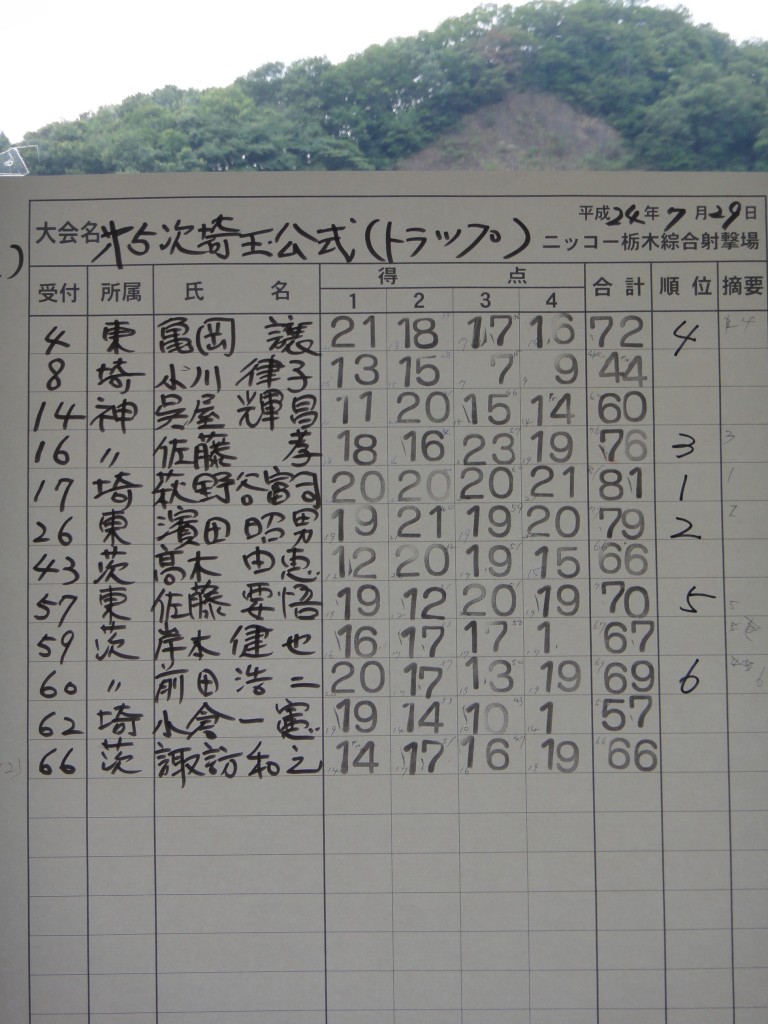 平成24年7月29日
大会名 第5次埼玉公式(トラップ) ニッコー栃木綜合射撃場
受付 所属 氏名 得点 合計 順位 摘要
1 2 3 4
4 東 亀岡 譲 21 18 17 16 72 4
8 埼 小川 律子 13 15 7 9 44
14 神 呉屋 輝昌 11 20 15 14 60
16 〃 佐藤 孝 18 16 23 19 76 3 3
17 埼 萩野谷富司 20 20 20 21 81 1 1
26 東 濱田 昭男 19 21 19 20 79 2 2
43 茨 高木 由恵 12 20 19 15 66
57 東 佐藤 要悟 19 12 20 19 70 5 5
59 茨 岸本 健也 16 17 17 1 67
60 〃 前田 浩二 20 17 13 19 69 6 6
62 埼 小倉 一憲 19 14 10 1 57
66 茨 諏訪 和之 14 17 16 19 66